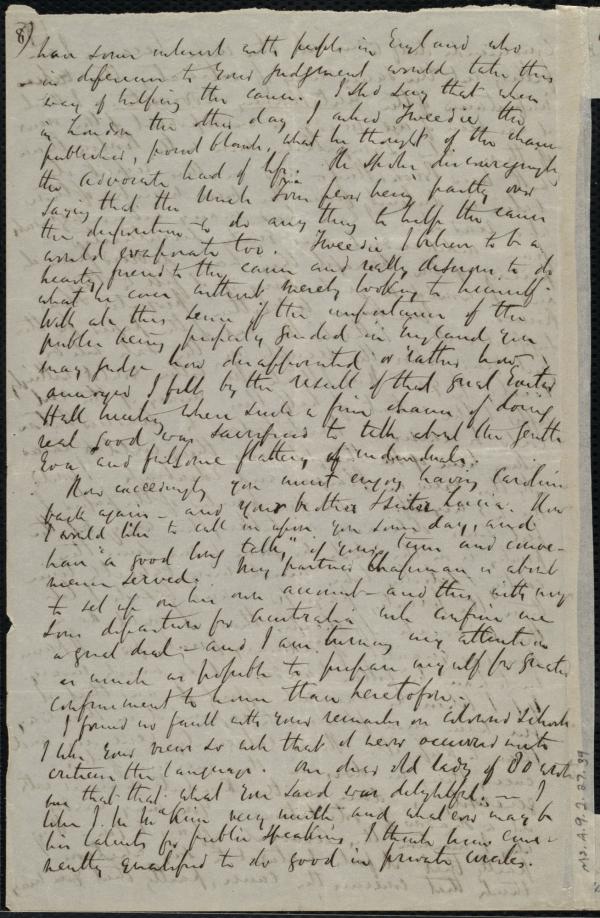 8)
have some interest with people in England who
in deference to your judgment would take this
way of helping the cause. I shd say that when
in London the other day I asked Tweedie the
publisher, point blank, what he thought of the chance
the Advocate had of life. He spoke discouragingly
saying that the Uncle Tom fever being partly over
the disposition to do any thing to help the cause
would evaporate too. Tweedie I believe to be a
hearty friend to the cause and really desirous to do
what he can without merely looking to himself.
With all this sense of the importance of the
public being properly guided in England you
may judge how disappointed or rather how
annoyed I felt by the result of that great Exeter
Hall meeting when such a fine chance of doing
real good was sacrificed to talk about the gentle
Eva and fulsome flattery of individuals.
How exceedingly you must enjoy having Caroline
back again - and your brother & sister Lucia. How
I would like to call in upon you some day, and
have "a good long talk," if your time and conve-
nience served. My partner Chapman is about
to set up on his own account - and this with my
sons departure for Australia will confine me
a good deal - and I am turning my attention
as much as possible to prepare myself for greater
confinement to home than heretofore.
I found no fault with your remarks on colored schools
I like your views so well that it never occurred to me to
criticise the language. One dear old lady of 80 wrote
me that that what you said was delightful. - I
like J. M. McKim very much and whatever may be
his talents for public speaking, I think him emi-
nently qualified to do good in private circles.
Ms. A. 9. 2. 27. 39